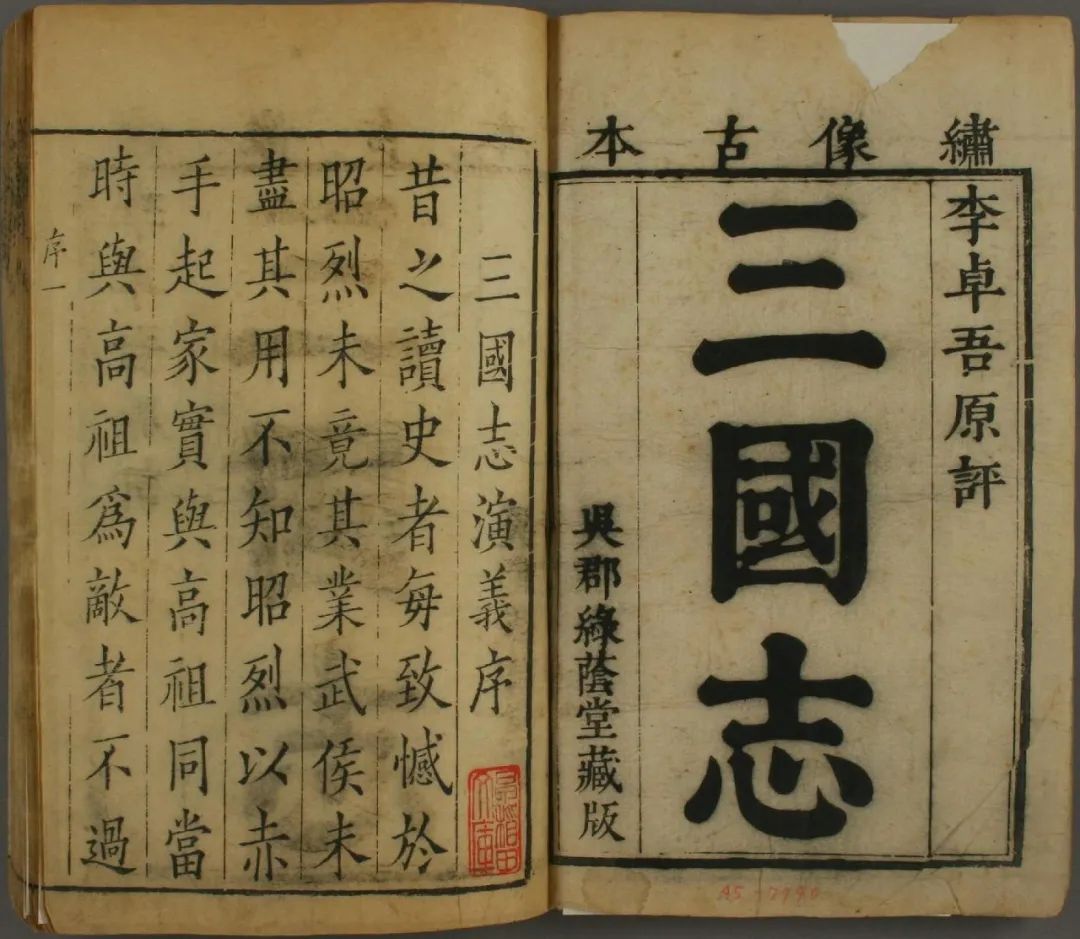 繡像古本
李卓吾原評
三國志
吳郡綠蔭堂藏版
三國志演義序
昔之讀史者每致憾於
昭烈未竟其業武侯未
盡其用不知昭烈以赤
手起家實與高祖同當
時與高祖爲敵者不過
序一
A5-7790